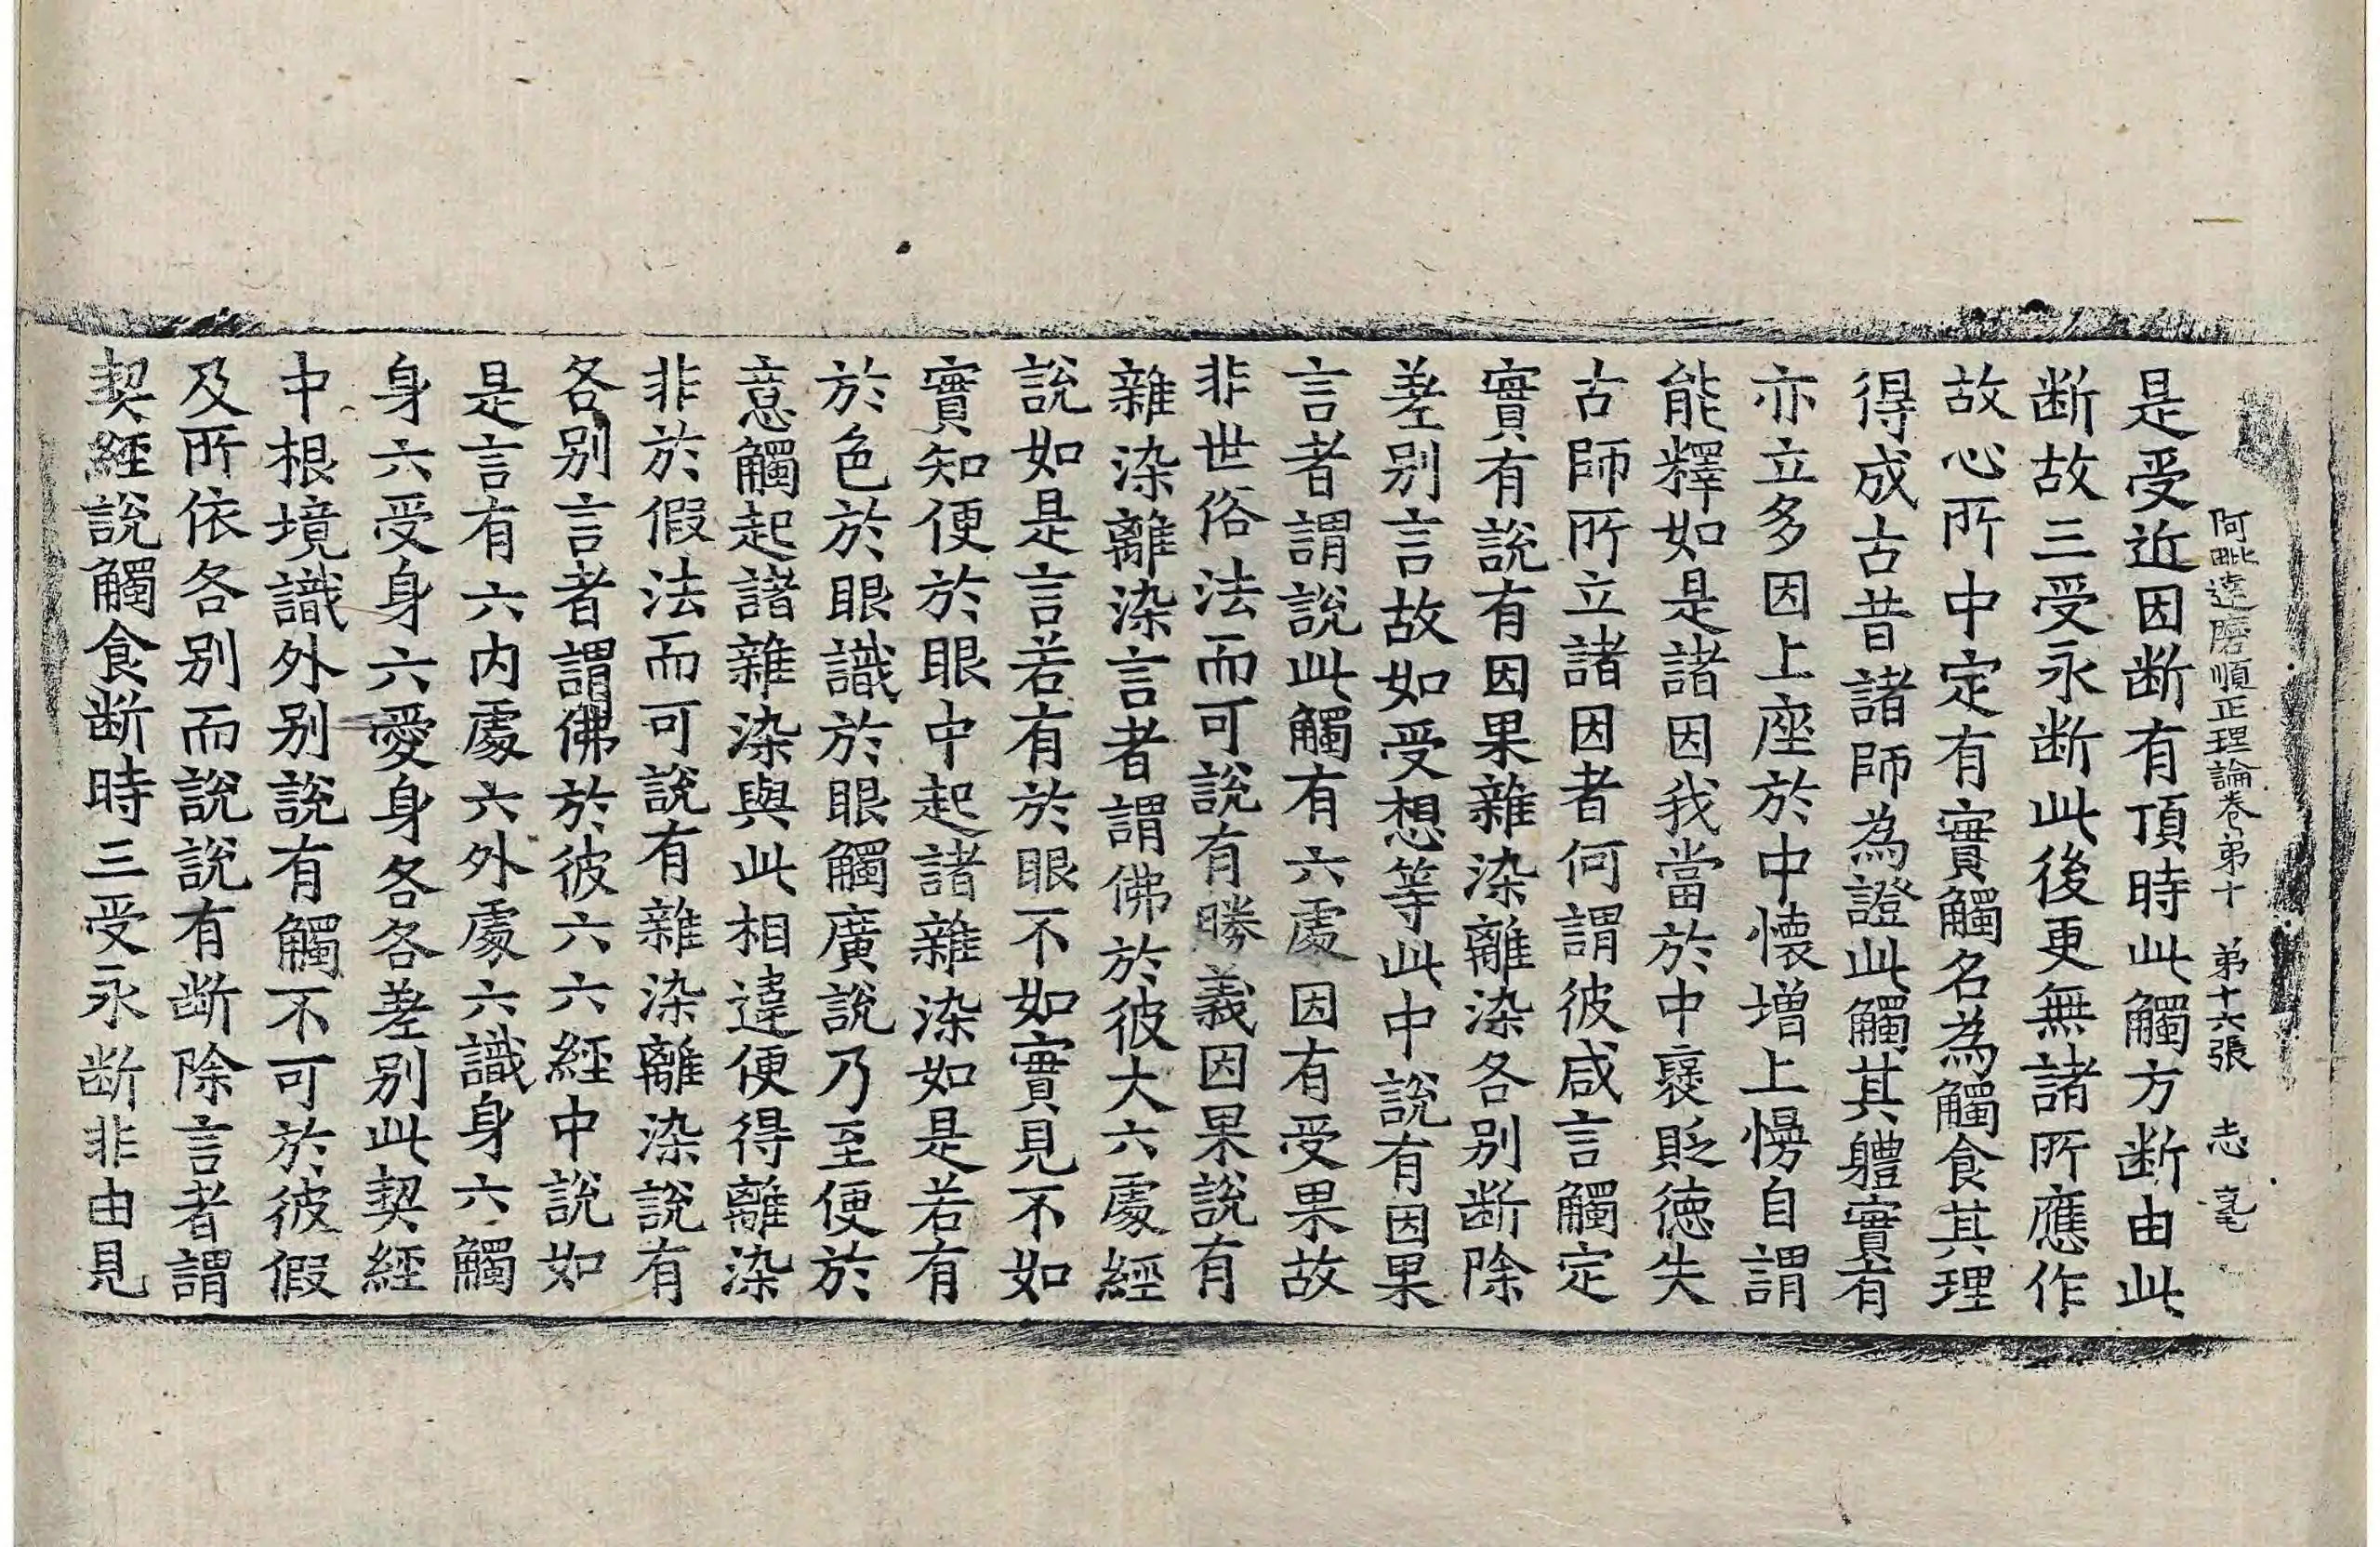 阿毗達磨順正理論卷弟十 弟十六張 志
是受近因断有頂時此觸方断由此
断故三受永断此後更無諸所應作
故心所中定有實觸名為觸食其理
得成古昔諸師為證此觸其軆實有
亦立多因上座於中懷增上慢自謂
能釋如是諸因我當於中襃貶德失
古師所立諸因者何謂彼咸言觸定
實有說有因果雜染離染各別断除
差別言故如受想等此中說有因果
言者謂說此觸有六處因有受果故
非世俗法而可說有勝義因果說有
雜染離染言者謂佛於彼大六處經
說如是言若有於眼不如實見不如
實知便於眼中起諸雜染如是若有
於色於眼識於眼觸廣說乃至便於
意觸起諸雜染與此相違便得離染
非於假法而可說有雜染離染說有
各別言者謂佛於彼六六經中說如
是言有六內處六外處六識身六觸
身六受身六愛身各各差別此契經
中根境識外別說有觸不可於彼假
及所依各別而說說有断除言者謂
契經說觸食断時三受永断非由見